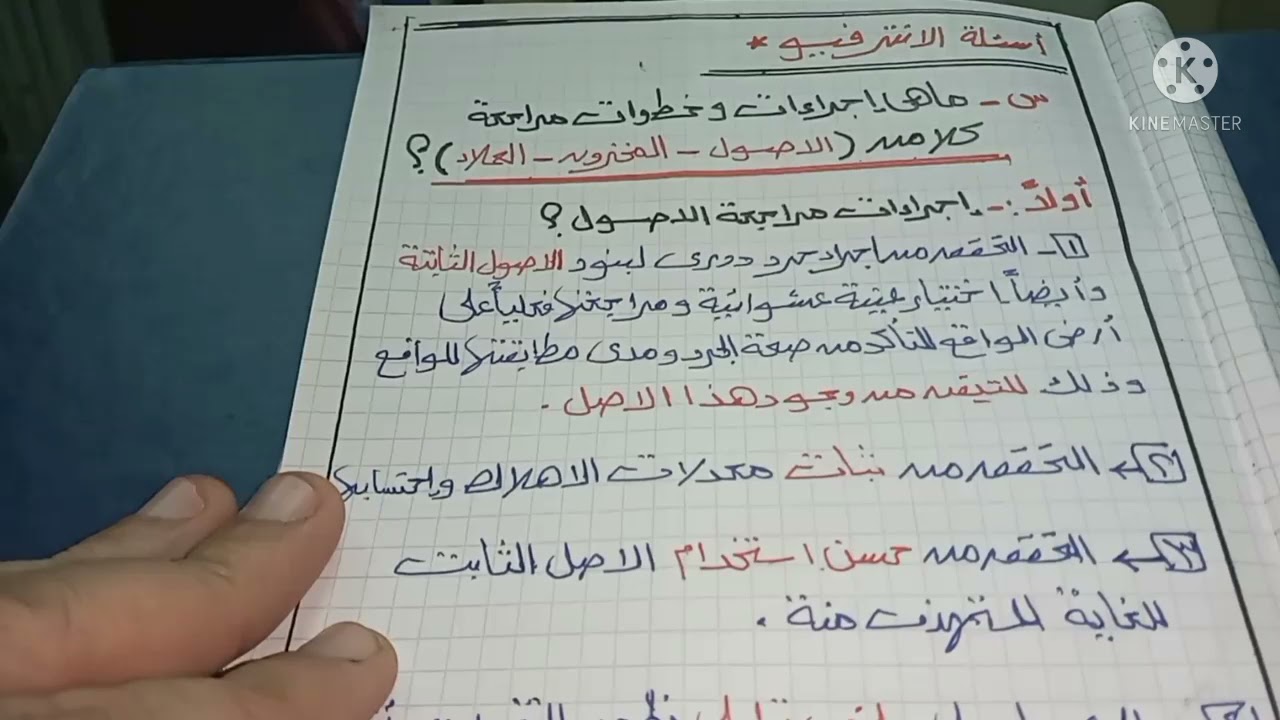 أسئلة الانترفيو *
س - ماهى إجراءات وخطوات مراجعة
كلا من (الاصول - المخزون - العملاء) ؟
أولاً :- إجراءات مراجعة الاصول ؟
١ - التحقق من اجراء جرد دورى لبنود الاصول الثابتة
وأيضاً اختيار عينة عشوائية ومراجعتها فعلياً على
أرض الواقع للتأكد من صحة الجرد ومدى مطابقتها للواقع
وذلك للتيقن من وجود هذا الاصل .
٢ ← التحقق من ثبات معدلات الاهلاك واحتسابها
٣ ← التحقق من حسن استخدام الاصل الثابت
للغاية المستهدفة منة .
K
KINEMASTER